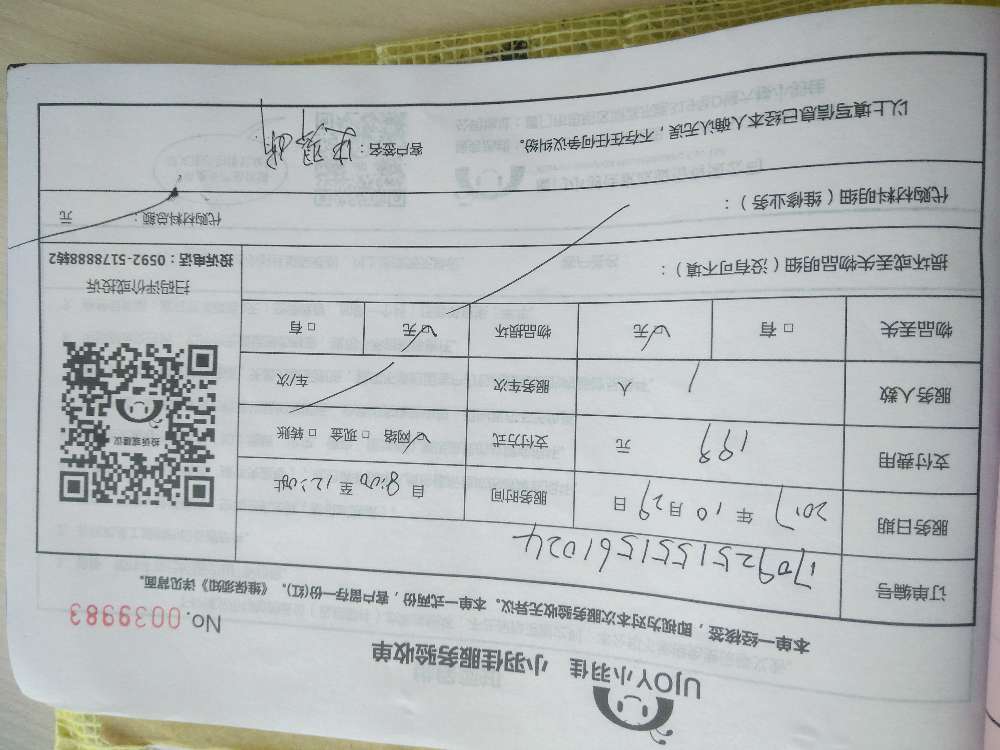 UJOY小羽佳 小羽佳服务验收单
No.0039983
本单一经接签，即视为对本次服务验收无异议。本单一式两份，客户留存一份(红)。《维保须知》详见背面。
订单编号 1709251551561024
服务日期 2017年10月29日 服务时间 自 8:00 至 12:00时
支付费用 199 元 支付方式 ☑网络 □现金 □转账
服务人数 1 人 服务车次 车/次
物品丢失 □有 ☑无 物品损坏 ☑无 □有
投诉或建议
扫码评价或投诉
投诉电话：0592-5178888转2
损坏或丢失物品明细（没有可不填）：
代购材料明细（维修业务）：
代购材料总额： 元
以上填写信息已经本人确认无误，不存在任何争议纠纷。 客户签名：